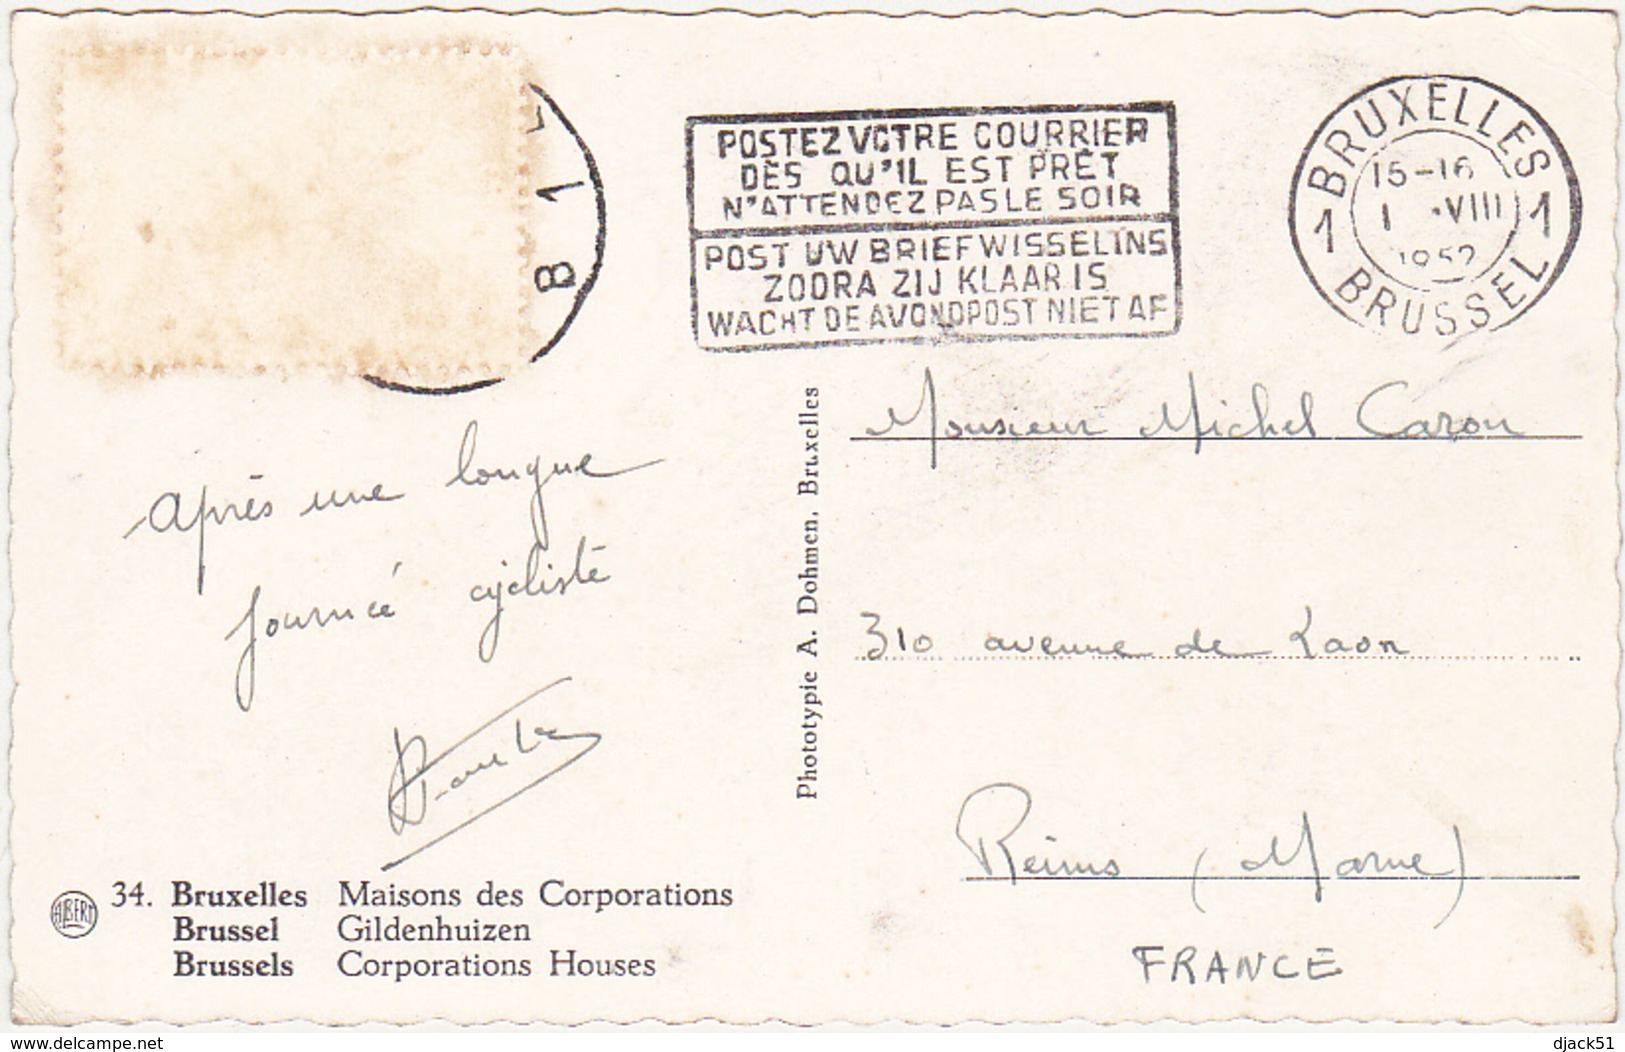 POSTEZ VOTRE COURRIER
DÈS QU'IL EST PRÊT
N'ATTENDEZ PAS LE SOIR
POST UW BRIEFWISSELING
ZODRA ZIJ KLAAR IS
WACHT DE AVONDPOST NIET AF
BRUXELLES
15-16
1 ·VIII
1952
1 1
BRUSSEL
B 1
Après une longue
journée cycliste
Monsieur Michel Caron
310 avenue de Laon
Reims (Marne)
FRANCE
Phototypie A. Dohmen, Bruxelles
ALBERT
34. Bruxelles Maisons des Corporations
Brussel Gildenhuizen
Brussels Corporations Houses
http://www.delcampe.net
djack51